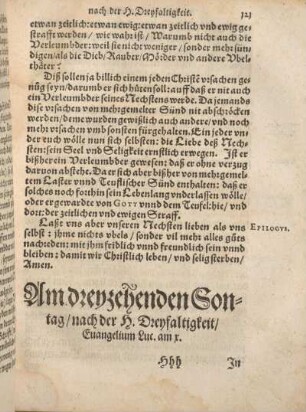 nach der H. Dreyfaltigkeit. 321
etwan zeitlich: etwan ewig: etwan zeitlich vnd ewig ge-
strafft werden/ wie wahr ist/ Warumb nicht auch die
Verleumbder: weil sie nicht weniger/ sonder mehr sün-
digen/ als die Dieb/ Rauber/ Mörder vnd andere Vbel-
thäter?
Diß sollen ja billich einem jeden Christē vrsachen ge-
nůg seyn/ darumber sich hüten soll: auff daß er nit auch
ein Verleumbder seines Nechstens werde. Da jemands
dise vrsachen von mehrgemelter Sünd nit abschröcken
werden/ deme wurden gewißlich auch andere/ vnd noch
mehr vrsachen vmb sonsten fürgehalten. Ein jeder vn-
der euch wölle nun sich selbsten: die Liebe deß Nech-
sten: sein Seel vnd Seligkeit ernstlich erwegen. Ist er
bißher ein Verleumbder gewesen: daß er ohne verzug
daruon abstehe. Da er sich aber bißher von mehrgemel-
tem Laster vnnd Teuflischer Sünd enthalten: daß er
solches noch forthin sein Lebenlang vnderlassen wölle/
oder ergewarte von GOTT vnnd dem Teufel: hie/ vnd
dort: der zeitlichen vnd ewigen Straff.
Laßt vns aber vnseren Nechsten lieben als vns
selbst: ihme nichts vbels/ sonder vil mehr alles gůts
nachreden: mit jhm fridlich vnnd freundlich sein vnnd
bleiben: damit wir Christlich leben/ vnd selig sterben/
Amen.
EPILOGVS.
Am dreyzehenden Son-
tag/ nach der H. Dreyfaltigkeit/
Euangelium Luc. am x.
Hhh In